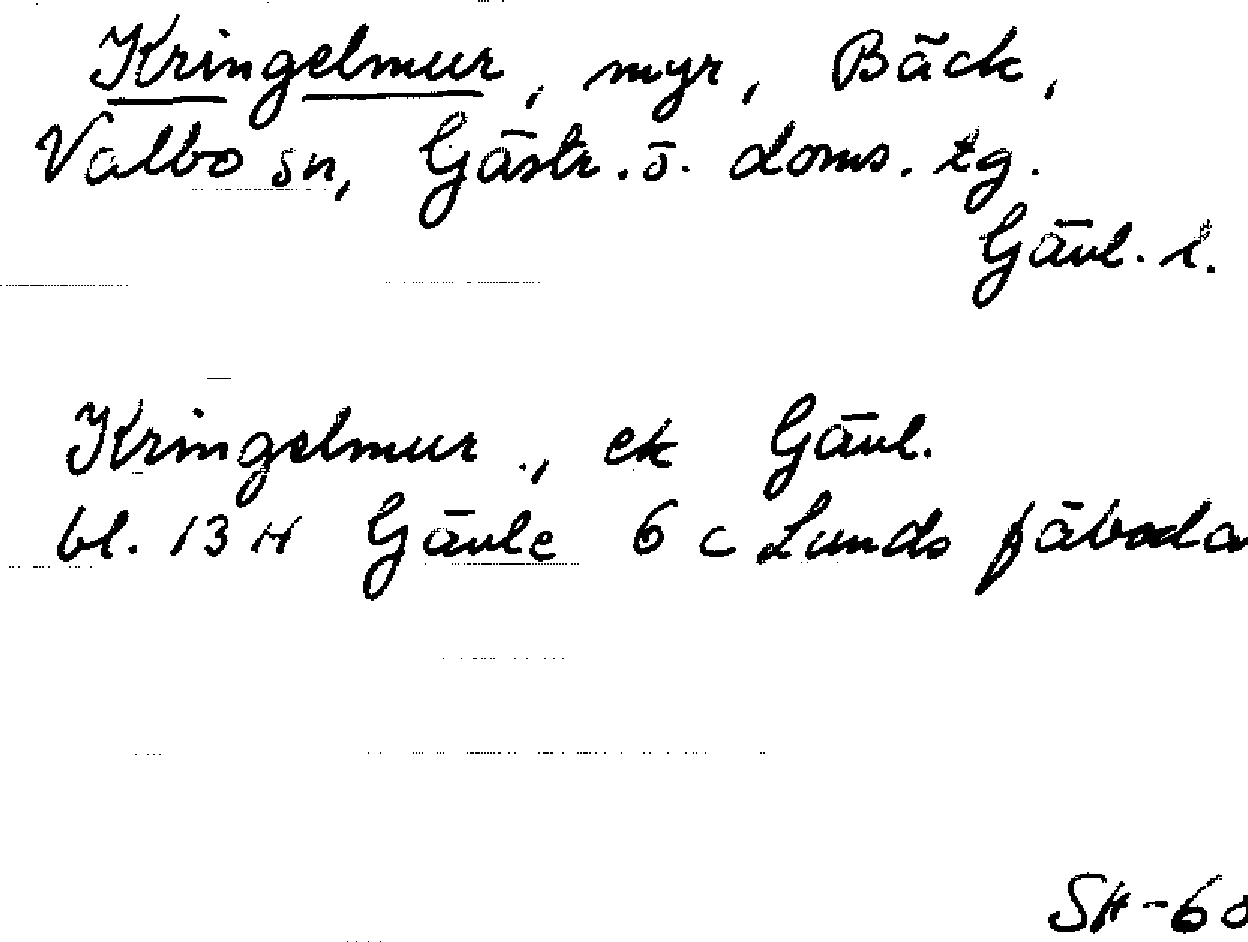 Kringelmur, myr, Bäck,
Valbo sn, Gästr. ö. doms. tg.
Gävl. l.
Kringelmur, ek Gävl.
bl. 13 H Gävle 6 c Lunds fäboda
SH-68